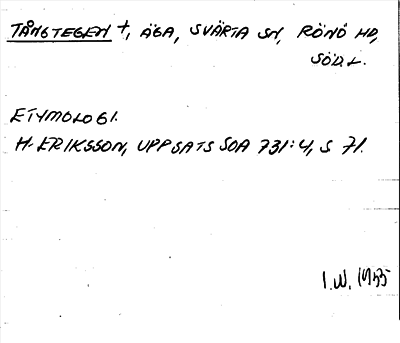 TÅNGTEGEN +, ÄGA, SVÄRTA SN, RÖNÖ HD,
SÖD.L.
ETYMOLOGI.
H. ERIKSSON, UPPSATS SOA 731:4, S 71.
I.W. 1955